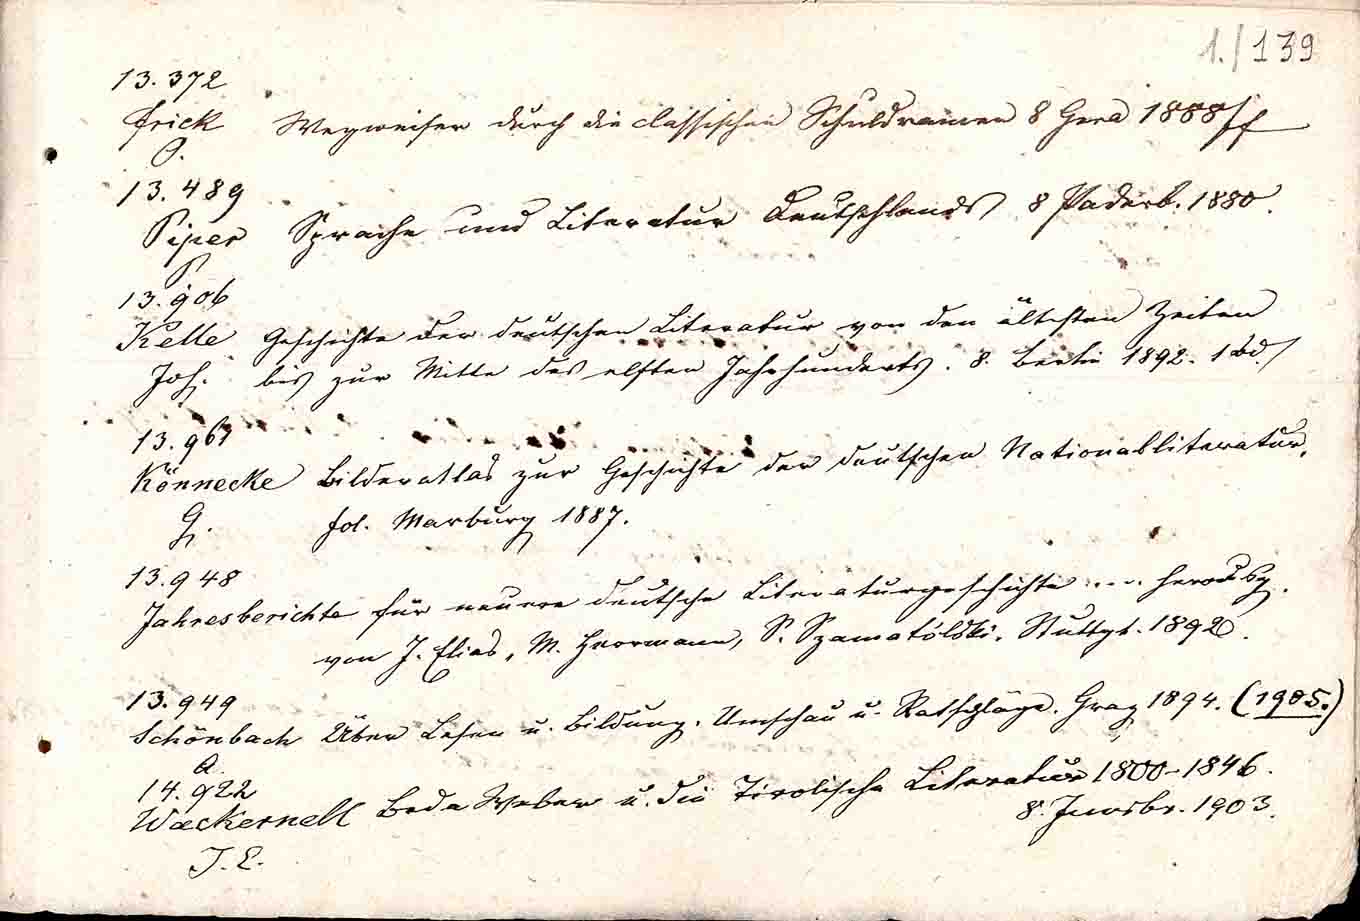 1./139
13.372
Frick Wegweiser durch die classischen Schuldramen 8 Gera 1888/ff
O.
13.489
Piper Sprache und Literatur Deutschlands 8 Paderb. 1880.
P.
13.906
Kelle Geschichte der deutschen Literatur von den ältesten Zeiten
Joh. bis zur Mitte des elften Jahrhunderts. 8. Berlin 1892. 1 Bd./
13.961
Könnecke Bilderatlas zur Geschichte der deutschen Nationalliteratur,
G. fol. Marburg 1887.
13.948
Jahresberichte für neuere deutsche Literaturgeschichte .... herausg.
von J. Elias, M. Herrmann, S. Szamatólski. Stuttgt. 1892.
13.949
Schönbach Über Lesen u. Bildung. Umschau u. Ratschläge. Graz 1894. (1905.)
A.
14.922
Wackernell Beda Weber u. die Tirolische Literatur 1800-1846.
8. Innsbr. 1903.
J. E.